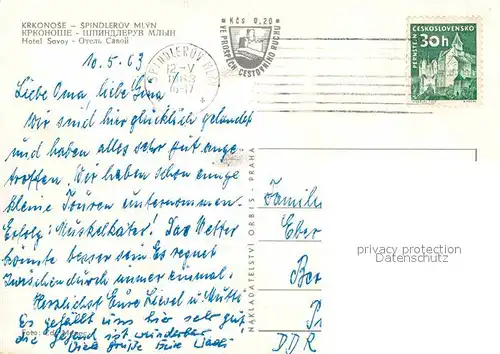 KRKONOŠE – ŠPINDLERŮV MLÝN
КРКОНОШЕ – ШПИНДЛЕРУВ МЛЫН
Hotel Savoy – Отель Савой
Kčs 0,20
VE PROSPĚCH CESTOVNÍHO RUCHU
ŠPINDLERŮV MLÝN
12-V
ČESKOSLOVENSKO
30h
PERNŠTEJN
10.5.63
Liebe Oma, liebe
Wir sind hier glücklich gelandet
und haben alles sehr gut ange-
troffen. Wir haben schon einige
kleine Touren unternommen.
Erfolg: Muskelkater! Das Wetter
könnte besser sein Es regnet
zwischendurch immer einmal.
Herzlichst Eure Liesel u Mutti
Es gefällt uns hier sehr gut
die Gegend ist wunderbar
Viele Grüße
NAKLADATELSTVÍ ORBIS - PRAHA
Foto:
Familie
Eber
Ber
P
DDR
privacy protection
Datenschutz